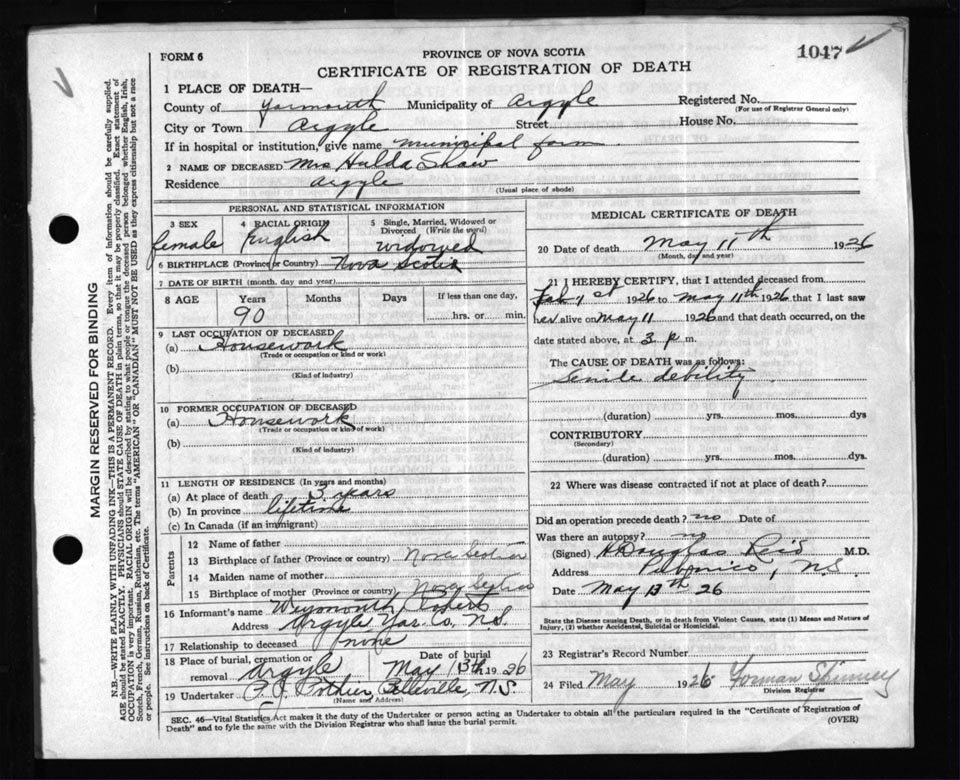 FORM 6
PROVINCE OF NOVA SCOTIA
1047
CERTIFICATE OF REGISTRATION OF DEATH
MARGIN RESERVED FOR BINDING
N.B.—WRITE PLAINLY WITH UNFADING INK—THIS IS A PERMANENT RECORD. Every item of information should be carefully supplied.
AGE should be stated EXACTLY. PHYSICIANS should STATE CAUSE OF DEATH in plain terms, so that it may be properly classified. Exact statement of
OCCUPATION is very important. RACIAL ORIGIN will be described by stating to what people or tongue the deceased person belonged whether English, Irish,
Scotch, French, German, Russian, Ruthenian, etc. The terms "AMERICAN" OR "CANADIAN" MUST NOT BE USED as they express citizenship but not a race
or people. See instructions on back of Certificate.
1 PLACE OF DEATH—
County of Yarmouth Municipality of Argyle Registered No.
(For use of Registrar General only)
City or Town Argyle Street House No.
If in hospital or institution, give name municipal farm
2 NAME OF DECEASED Mrs Hulda Shaw
Residence Argyle
(Usual place of abode)
PERSONAL AND STATISTICAL INFORMATION
3 SEX 4 RACIAL ORIGIN 5 Single, Married, Widowed or Divorced (Write the word)
female English widowed
6 BIRTHPLACE (Province or Country) Nova Scotia
7 DATE OF BIRTH (month, day and year)
8 AGE Years Months Days If less than one day,
90 hrs. or min.
9 LAST OCCUPATION OF DECEASED
(a) Housework
(Trade or occupation or kind or work)
(b)
(Kind of industry)
10 FORMER OCCUPATION OF DECEASED
(a) Housework
(Trade or occupation or kind of work)
(b)
(Kind of industry)
11 LENGTH OF RESIDENCE (In years and months)
(a) At place of death 3 years
(b) In province lifetime
(c) In Canada (if an immigrant)
Parents
12 Name of father
13 Birthplace of father (Province or country) Nova Scotia
14 Maiden name of mother
15 Birthplace of mother (Province or country) Nova Scotia
16 Informant's name Weymouth
Address Argyle Yar. Co, N.S.
17 Relationship to deceased none
18 Place of burial, cremation or removal Argyle Date of burial May 13th 1926
19 Undertaker Pothier, Belleville, N.S.
(Name and Address)
MEDICAL CERTIFICATE OF DEATH
20 Date of death May 11th 1926
(Month, day and year)
21 I HEREBY CERTIFY, that I attended deceased from
Feb 1st 1926 to May 11th 1926 that I last saw
her alive on May 11 1926 and that death occurred, on the
date stated above, at 3 p m.
The CAUSE OF DEATH was as follows:
Senile debility
(duration) yrs. mos. dys
CONTRIBUTORY
(Secondary)
(duration) yrs. mos. dys.
22 Where was disease contracted if not at place of death?
Did an operation precede death? no Date of
Was there an autopsy? no
(Signed) H Douglas Reid M.D.
Address Pubnico, N.S.
Date May 13th 26
State the Disease causing Death, or in death from Violent Causes, state (1) Means and Nature of
Injury, (2) whether Accidental, Suicidal or Homicidal.
23 Registrar's Record Number
24 Filed May 1926 Forman
Division Registrar
SEC. 46—Vital Statistics Act makes it the duty of the Undertaker or person acting as Undertaker to obtain all the particulars required in the "Certificate of Registration of
Death" and to fyle the same with the Division Registrar who shall issue the burial permit.
(OVER)